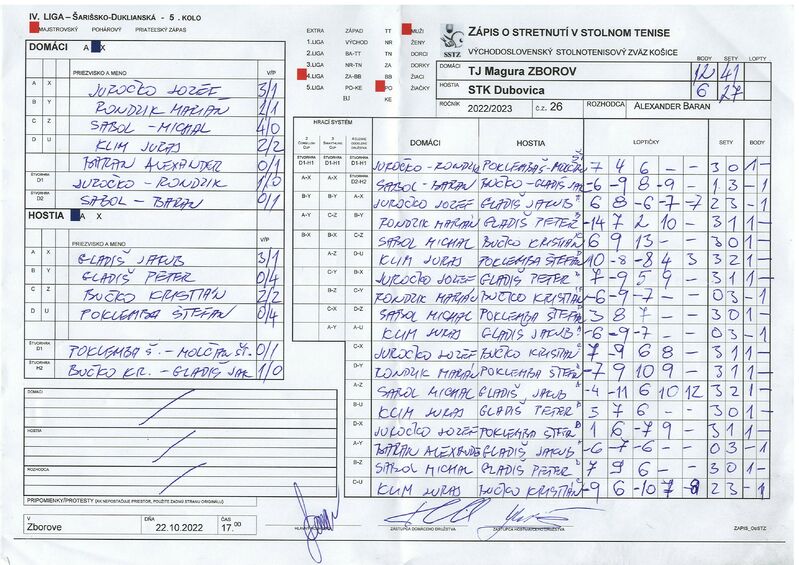 IV. LIGA – ŠARIŠSKO-DUKLIANSKÁ - 5. KOLO
MAJSTROVSKÝ POHÁROVÝ PRIATEĽSKÝ ZÁPAS
DOMÁCI A X
PRIEZVISKO A MENO V/P
A X JUROČKO JOZEF 3/1
B Y RONDZIK MARIÁN 1/1
C Z SABOL MICHAL 4/0
D U KLIM JURAJ 2/2
BARAN ALEXANDER 0/1
ŠTVORHRA D1 JUROČKO - RONDZIK 1/0
ŠTVORHRA D2 SABOL - BARAN 0/1
HOSTIA A X
PRIEZVISKO A MENO V/P
A X GLADIŠ JAKUB 3/1
B Y GLADIŠ PETER 0/4
C Z BUČKO KRISTIÁN 2/2
D U POKLEMBA ŠTEFAN 0/4
ŠTVORHRA D1 POKLEMBA Š. - MOLČAN ŠT. 0/1
ŠTVORHRA H2 BUČKO KR. - GLADIŠ JAK 1/0
DOMÁCI
HOSTIA
ROZHODCA
PRIPOMIENKY/PROTESTY (AK NEPOSTAČUJE PRIESTOR, POUŽITE ZADNÚ STRANU ORIGINÁLU)
V Zborove DŇA 22.10.2022 ČAS 17.00
EXTRA ZÁPAD TT MUŽI
1.LIGA VÝCHOD NR ŽENY
2.LIGA BA-TT TN DORKY
3.LIGA NR-TN ZA DORCI
4.LIGA ZA-BB BB ŽIACI
5.LIGA PO-KE PO ŽIAČKY
BJ KE
SSTZ
ZÁPIS O STRETNUTÍ V STOLNOM TENISE
VÝCHODOSLOVENSKÝ STOLNOTENISOVÝ ZVÄZ KOŠICE
BODY SETY LOPTY
DOMÁCI TJ Magura ZBOROV 12 41
HOSTIA STK Dubovica 6 27
ROČNÍK 2022/2023 č.z. 26 ROZHODCA ALEXANDER BARAN
HRACÍ SYSTÉM DOMÁCI HOSTIA LOPTIČKY SETY BODY
JUROČKO - RONDZIK POKLEMBA Š - MOLČAN 7 4 6 - - 3 0 1 -
SABOL - BARAN BUČKO - GLADIŠ JAK -6 -9 8 -9 - 1 3 - 1
JUROČKO JOZEF GLADIŠ JAKUB 6 8 -6 -7 -7 2 3 - 1
RONDZIK MARIÁN GLADIŠ PETER -14 7 2 10 - 3 1 1 -
SABOL MICHAL BUČKO KRISTIÁN 6 9 13 - - 3 0 1 -
KLIM JURAJ POKLEMBA ŠTEFAN 10 -8 -8 4 3 3 2 1 -
JUROČKO JOZEF GLADIŠ PETER 7 -9 5 9 - 3 1 1 -
RONDZIK MARIÁN BUČKO KRISTIÁN -6 -9 -7 - - 0 3 - 1
SABOL MICHAL POKLEMBA ŠTEFAN 3 8 7 - - 3 0 1 -
KLIM JURAJ GLADIŠ JAKUB -6 -9 -7 - - 0 3 - 1
JUROČKO JOZEF BUČKO KRISTIÁN 7 -9 6 8 - 3 1 1 -
RONDZIK MARIÁN POKLEMBA ŠTEFAN -7 9 10 9 - 3 1 1 -
SABOL MICHAL GLADIŠ JAKUB -4 -11 6 10 12 3 2 1 -
KLIM JURAJ GLADIŠ PETER 3 7 6 - - 3 0 1 -
JUROČKO JOZEF POKLEMBA ŠTEFAN 1 6 -7 9 - 3 1 1 -
BARAN ALEXANDE GLADIŠ JAKUB -6 -7 -6 - - 0 3 - 1
SABOL MICHAL GLADIŠ PETER 7 9 6 - - 3 0 1 -
KLIM JURAJ BUČKO KRISTIÁN -9 6 -10 7 2 3 - 1
ZÁSTUPCA DOMÁCEHO DRUŽSTVA ZÁSTUPCA HOSŤUJÚCEHO DRUŽSTVA ZÁPIS_OoSTZ